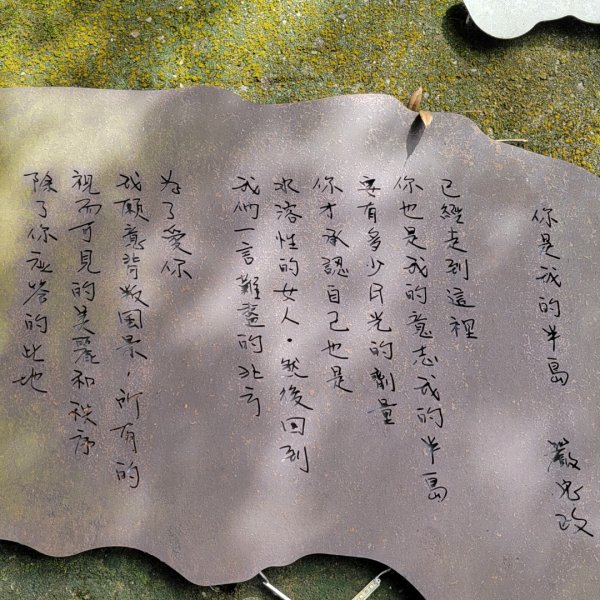 你是我的半島　嚴忠政
已經走到這裡
你也是我的意志我的半島
要有多少月光的劑量
你才承認自己也是
水溶性的女人。然後回到
我們一言難盡的北方
為了愛你
我願意背叛風景，所有的
視而可見的美麗和秩序
除了你座落的此地